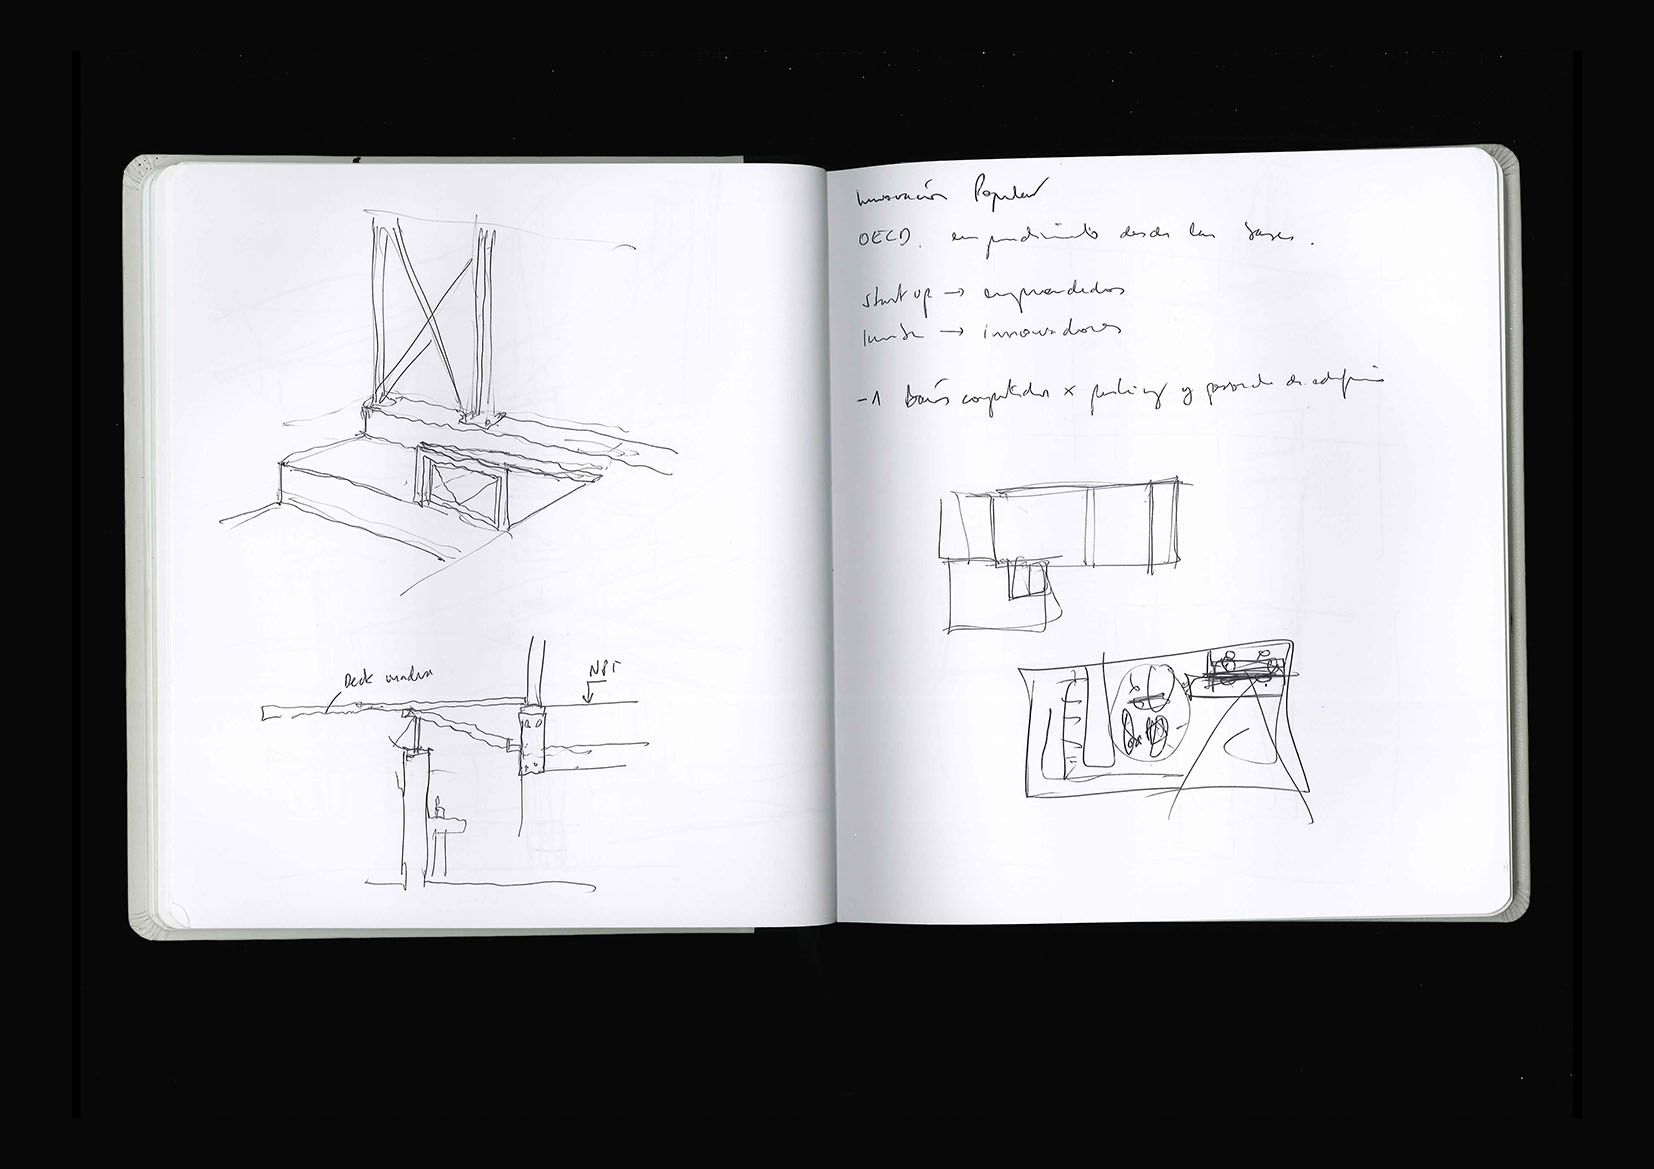 Deck madera
NPT
Innovación Popular
OECD. emprendimiento desde las bases.
start up → emprendedores
→ innovadores
-1 Baños compartidos x parking y personal de